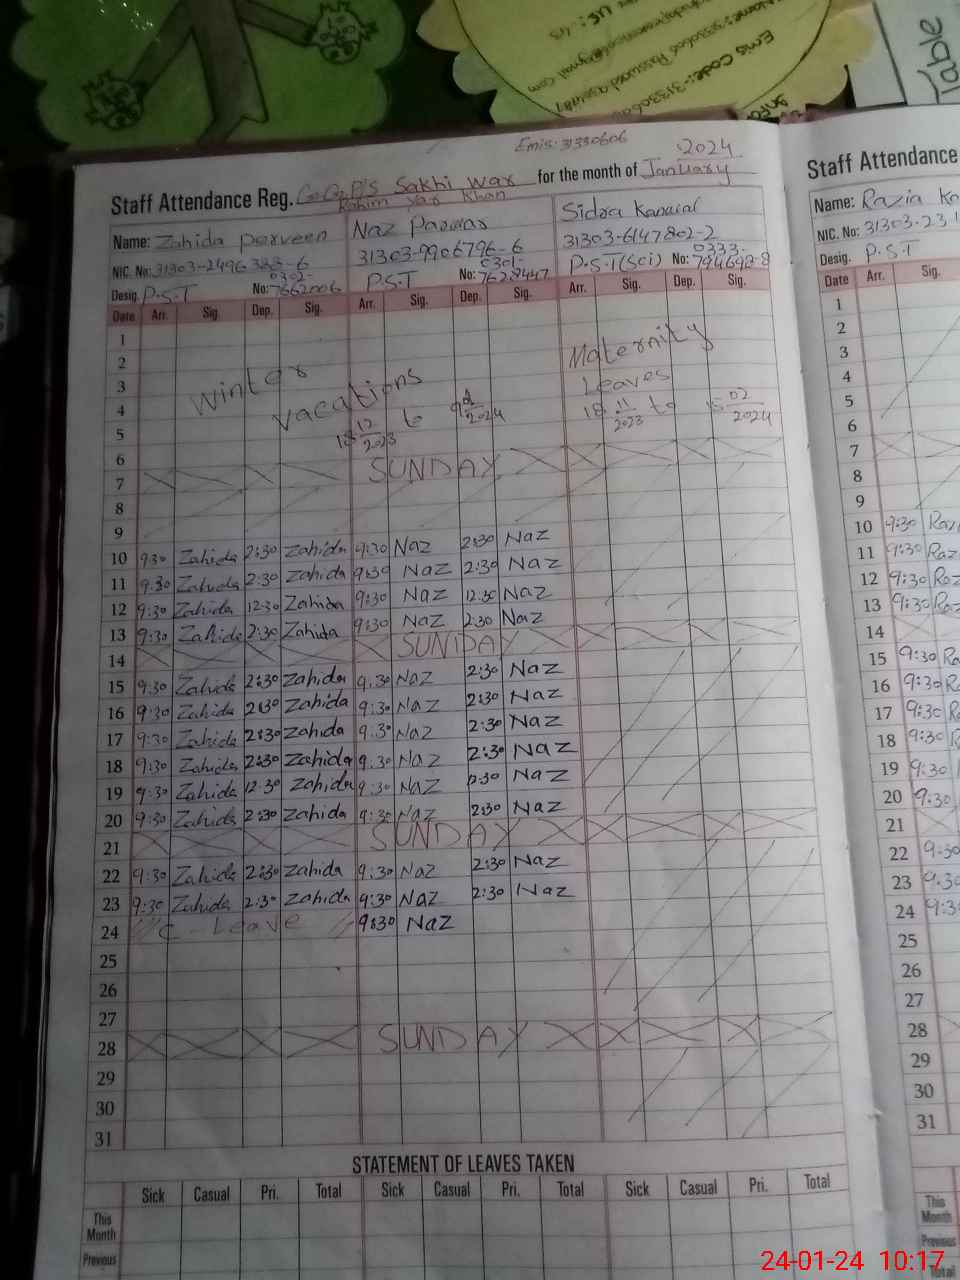 Ems Code:-31330606
Table
Emis: 31330606
2024
Staff Attendance Reg. G.G.P/S Sakhi war for the month of January
Rahim Yar Khan
Name: Zahida Perveen Naz Parwar Sidra
NIC. No: 31303-2496383-6 31303-9906796-6 31303-6147802-2
0302- 0301- 0333-
Desig. P.S.T No: 7662006 P.S.T No: 7628447 P.S.T(Sci) No: 7946948-8
Date Arr. Sig. Dep. Sig. Arr. Sig. Dep. Sig. Arr. Sig. Dep. Sig.
1
2 Maternity
3 Winter Leaves
4 vacations 18 11/2023 to 15 02/2024
5 18 12/2023 to 9 01/2024
6
7 SUNDAY
8
9
10 9:30 Zahida 2:30 Zahida 9:30 Naz 2:30 Naz
11 9:30 Zahida 2:30 Zahida 9:30 Naz 2:30 Naz
12 9:30 Zahida 12:30 Zahida 9:30 Naz 12:30 Naz
13 9:30 Zahida 2:30 Zahida 9:30 Naz 2:30 Naz
14 SUNDAY
15 9:30 Zahida 2:30 Zahida 9:30 Naz 2:30 Naz
16 9:30 Zahida 2:30 Zahida 9:30 Naz 2:30 Naz
17 9:30 Zahida 2:30 Zahida 9:30 Naz 2:30 Naz
18 9:30 Zahida 2:30 Zahida 9:30 Naz 2:30 Naz
19 9:30 Zahida 12:30 Zahida 9:30 Naz 12:30 Naz
20 9:30 Zahida 2:30 Zahida 9:30 Naz 2:30 Naz
21 SUNDAY
22 9:30 Zahida 2:30 Zahida 9:30 Naz 2:30 Naz
23 9:30 Zahida 2:30 Zahida 9:30 Naz 2:30 Naz
24 C - Leave 9:30 Naz
25
26
27
28 SUNDAY
29
30
31
STATEMENT OF LEAVES TAKEN
Sick Casual Pri. Total Sick Casual Pri. Total Sick Casual Pri. Total
This Month
Previous
Staff Attendance
Name: Razia Ka
NIC. No: 31303-231
Desig. P.S.T
Date Arr. Sig.
1
2
3
4
5
6
7
8
9
10 9:30 Razi
11 9:30 Raz
12 9:30 Raz
13 9:30 Raz
14
15 9:30 Ra
16 9:30 Ra
17 9:30 Ra
18 9:30 R
19 9:30
20 9:30
21
22 9:30
23 9:30
24 9:30
25
26
27
28
29
30
31
This Month
Previous
Total
24-01-24 10:17